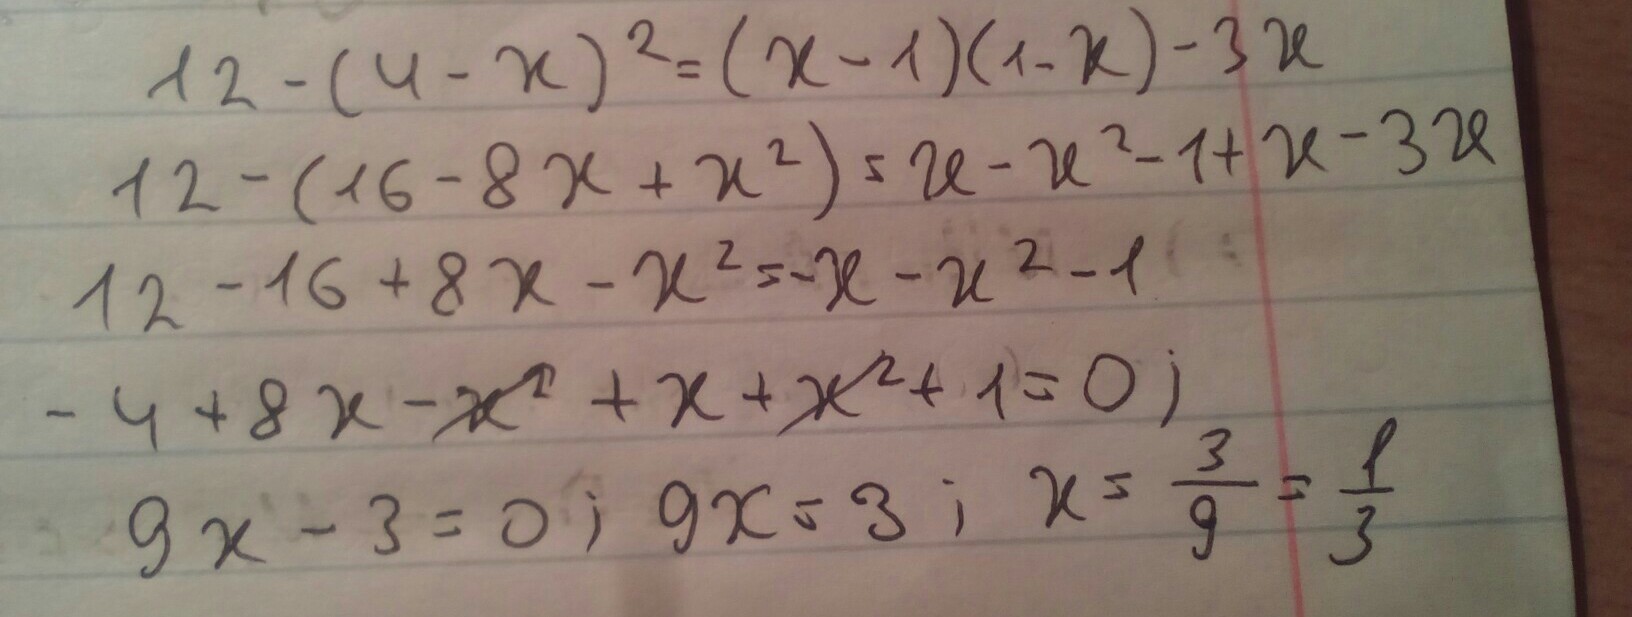 12-(4-x)²=(x-1)(1-x)-3x
12-(16-8x+x²)=x-x²-1+x-3x
12-16+8x-x²=-x-x²-1
-4+8x-x²+x+x²+1=0;
9x-3=0; 9x=3; x=3/9=1/3